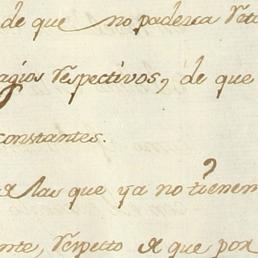 de que no padezca
agios respectivos, de que
constantes.
a las que ya no tienen
nte, respecto a que por